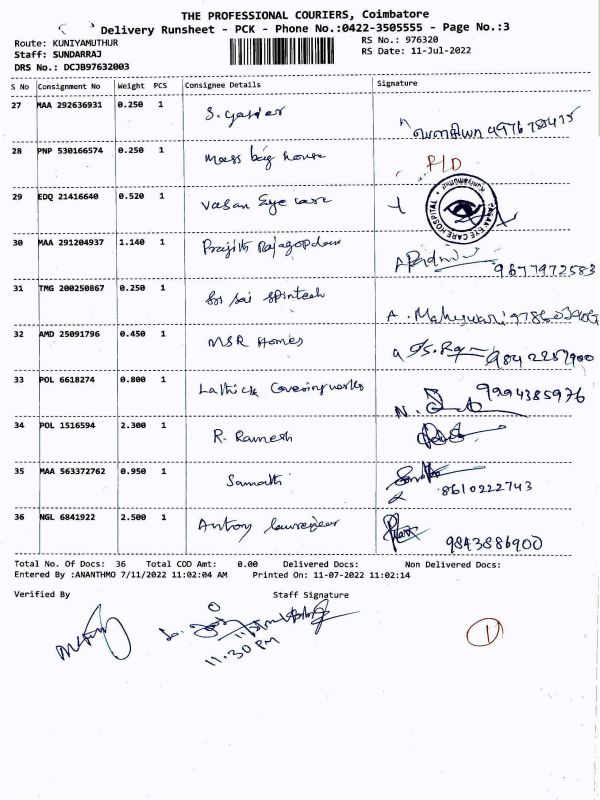 THE PROFESSIONAL COURIERS, Coimbatore
Delivery Runsheet - PCK - Phone No.:0422-3505555 - Page No.:3
Route: KUNIYAMUTHUR
RS No.: 976320
Staff: SUNDARRAJ
RS Date: 11-Jul-2022
DRS No.: DCJB97632003
S No Consignment No Weight PCS Consignee Details Signature
27 MAA 292636931 0.250 1
28 PNP 530166574 0.250 1 Mass big house R/D
29 EDQ 21416640 0.520 1 Vasan Eye care
VASAN EYE CARE HOSPITAL Kuniyamuthur
30 MAA 291204937 1.140 1 Prajith Rajagopalan
9677972583
31 TMG 200250867 0.250 1 Sri Sai Spintech
A. Maheswari
32 AMD 25091796 0.450 1 MSR Homes
9842257900
33 POL 6618274 0.800 1 Lathick Coveringworks 9994385976
34 POL 1516594 2.300 1 R. Ramesh
35 MAA 563372762 0.950 1 Sumathi
8610222743
36 NGL 6841922 2.500 1 Antony
9843886900
Total No. Of Docs: 36 Total COD Amt: 0.00 Delivered Docs: Non Delivered Docs:
Entered By :ANANTHMO 7/11/2022 11:02:04 AM Printed On: 11-07-2022 11:02:14
Verified By Staff Signature
11.30 PM
1